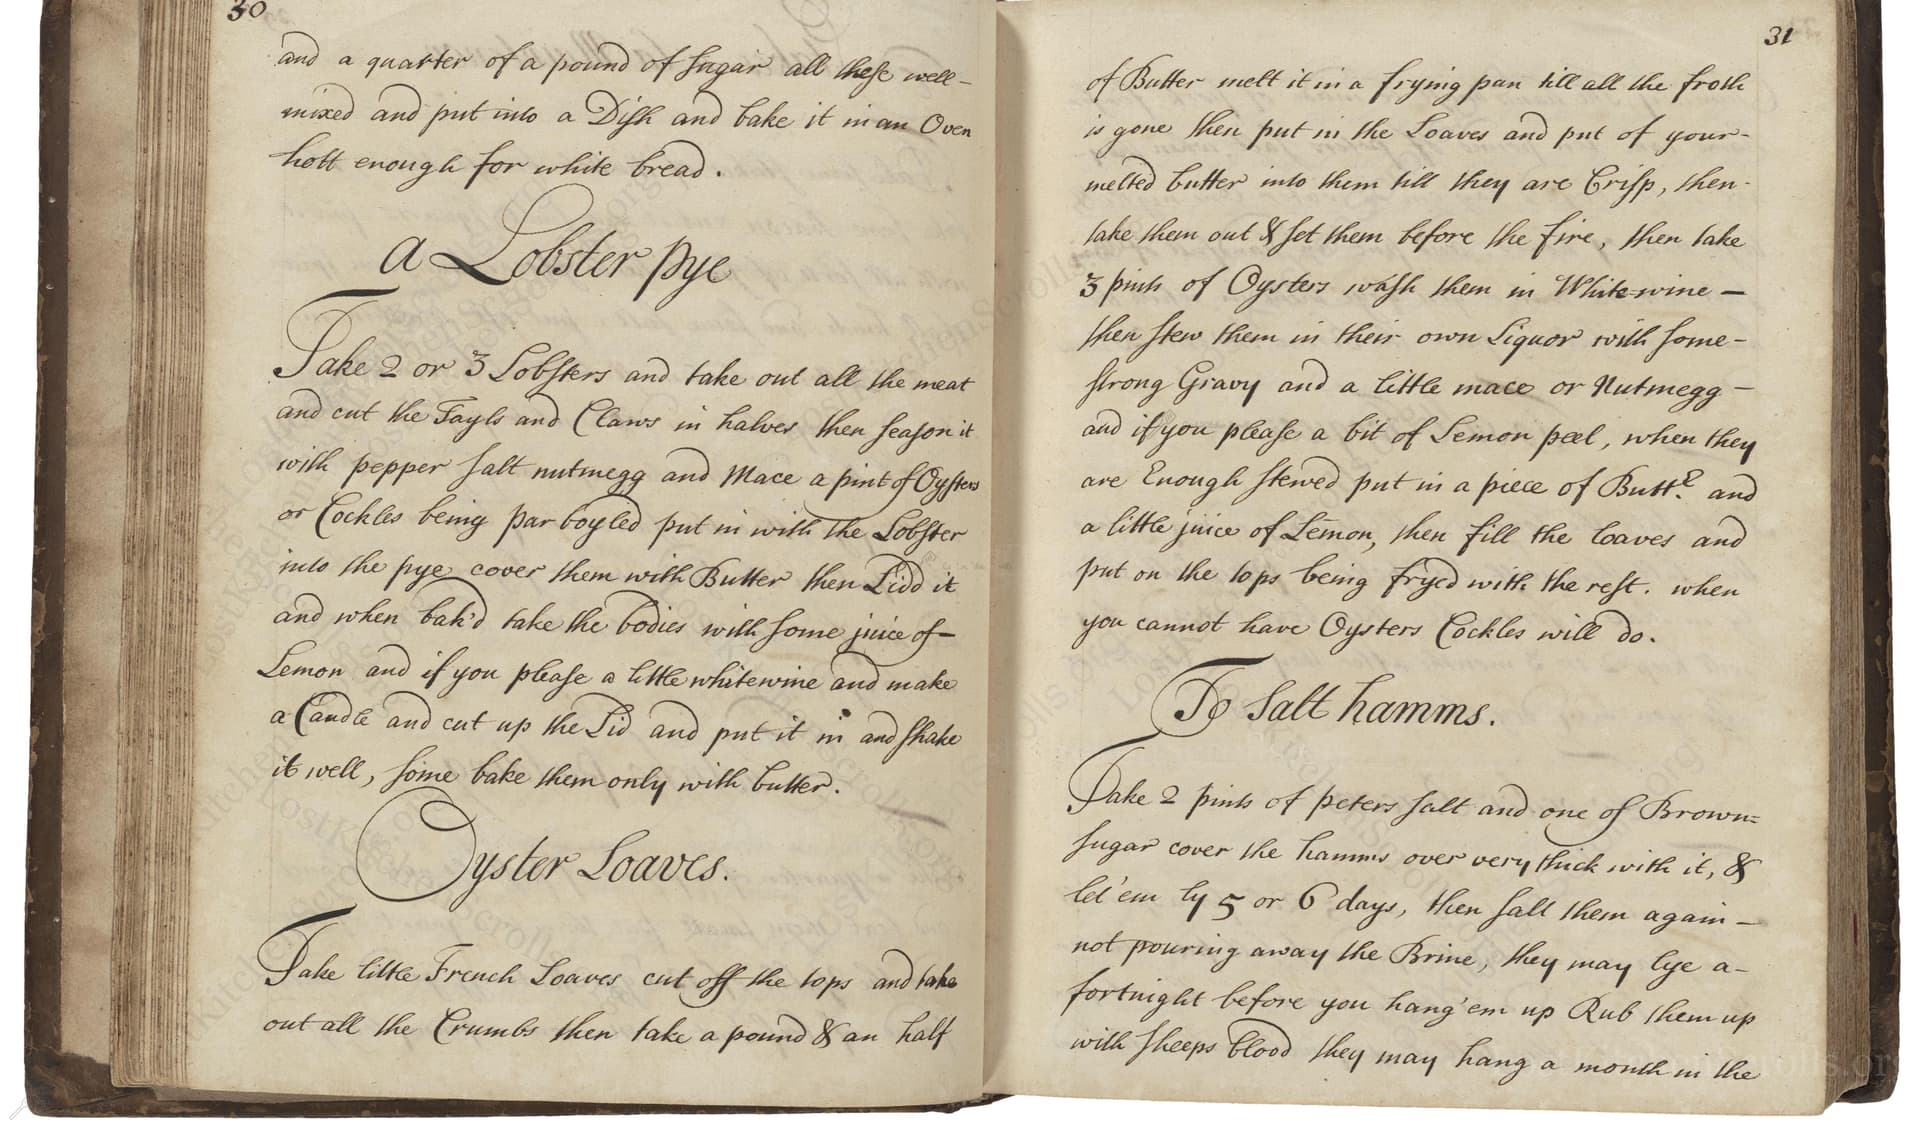 30
and a quarter of a pound of sugar all these well-
mixed and put into a Dish and bake it in an Oven
hott enough for white bread.
a Lobster pye
Take 2 or 3 Lobsters and take out all the meat
and cut the Tayls and Claws in halves then season it
with pepper salt nutmegg and Mace a pint of Oysters
or Cockles being par boyled put in with the Lobster
into the pye cover them with Butter then Lidd it
and when bak'd take the bodies with some juice of-
Lemon and if you please a little whitewine and make
a Caudle and cut up the Lid and put it in and shake
it well, some bake them only with butter.
Oyster Loaves.
Take little French Loaves cut off the tops and take
out all the Crumbs then take a pound & an half
31
of Butter melt it in a frying pan till all the froth
is gone then put in the Loaves and put of your-
melted butter into them till they are Crisp, then-
take them out & set them before the fire, then take
3 pints of Oysters wash them in White=wine-
then stew them in their own Liquor with some-
strong Gravy and a little mace or Nutmegg-
and if you please a bit of Lemon peel, when they
are Enough stewed put in a piece of Buttr. and
a little juice of Lemon, then fill the loaves and
put on the tops being fryed with the rest. when
you cannot have Oysters Cockles will do.
To Salt hamms.
Take 2 pints of peters salt and one of Brown=
sugar cover the hamms over very thick with it, &
let 'em ly 5 or 6 days, then salt them again-
not pouring away the Brine, they may lye a-
fortnight before you hang 'em up Rub them up
with sheeps blood they may hang a month in the